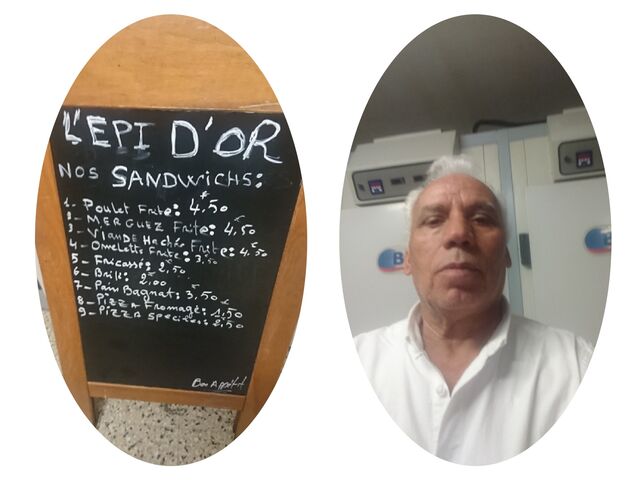 L'EPI D'OR
NOS SANDWICHS:
1- Poulet Frite: 4,50 €
2- MERGUEZ Frite: 4,50 €
3- Viande Haché Frite: 4,50 €
4- Omelette Frite: 3,50 €
5- Fricassé: 2,50 €
6- Brik: 2,00 €
7- Pain Bagnat: 3,50 €
8- PIZZA Fromage: 1,50
9- PIZZA Spéciale: 2,50
Bon Appétit
B
B